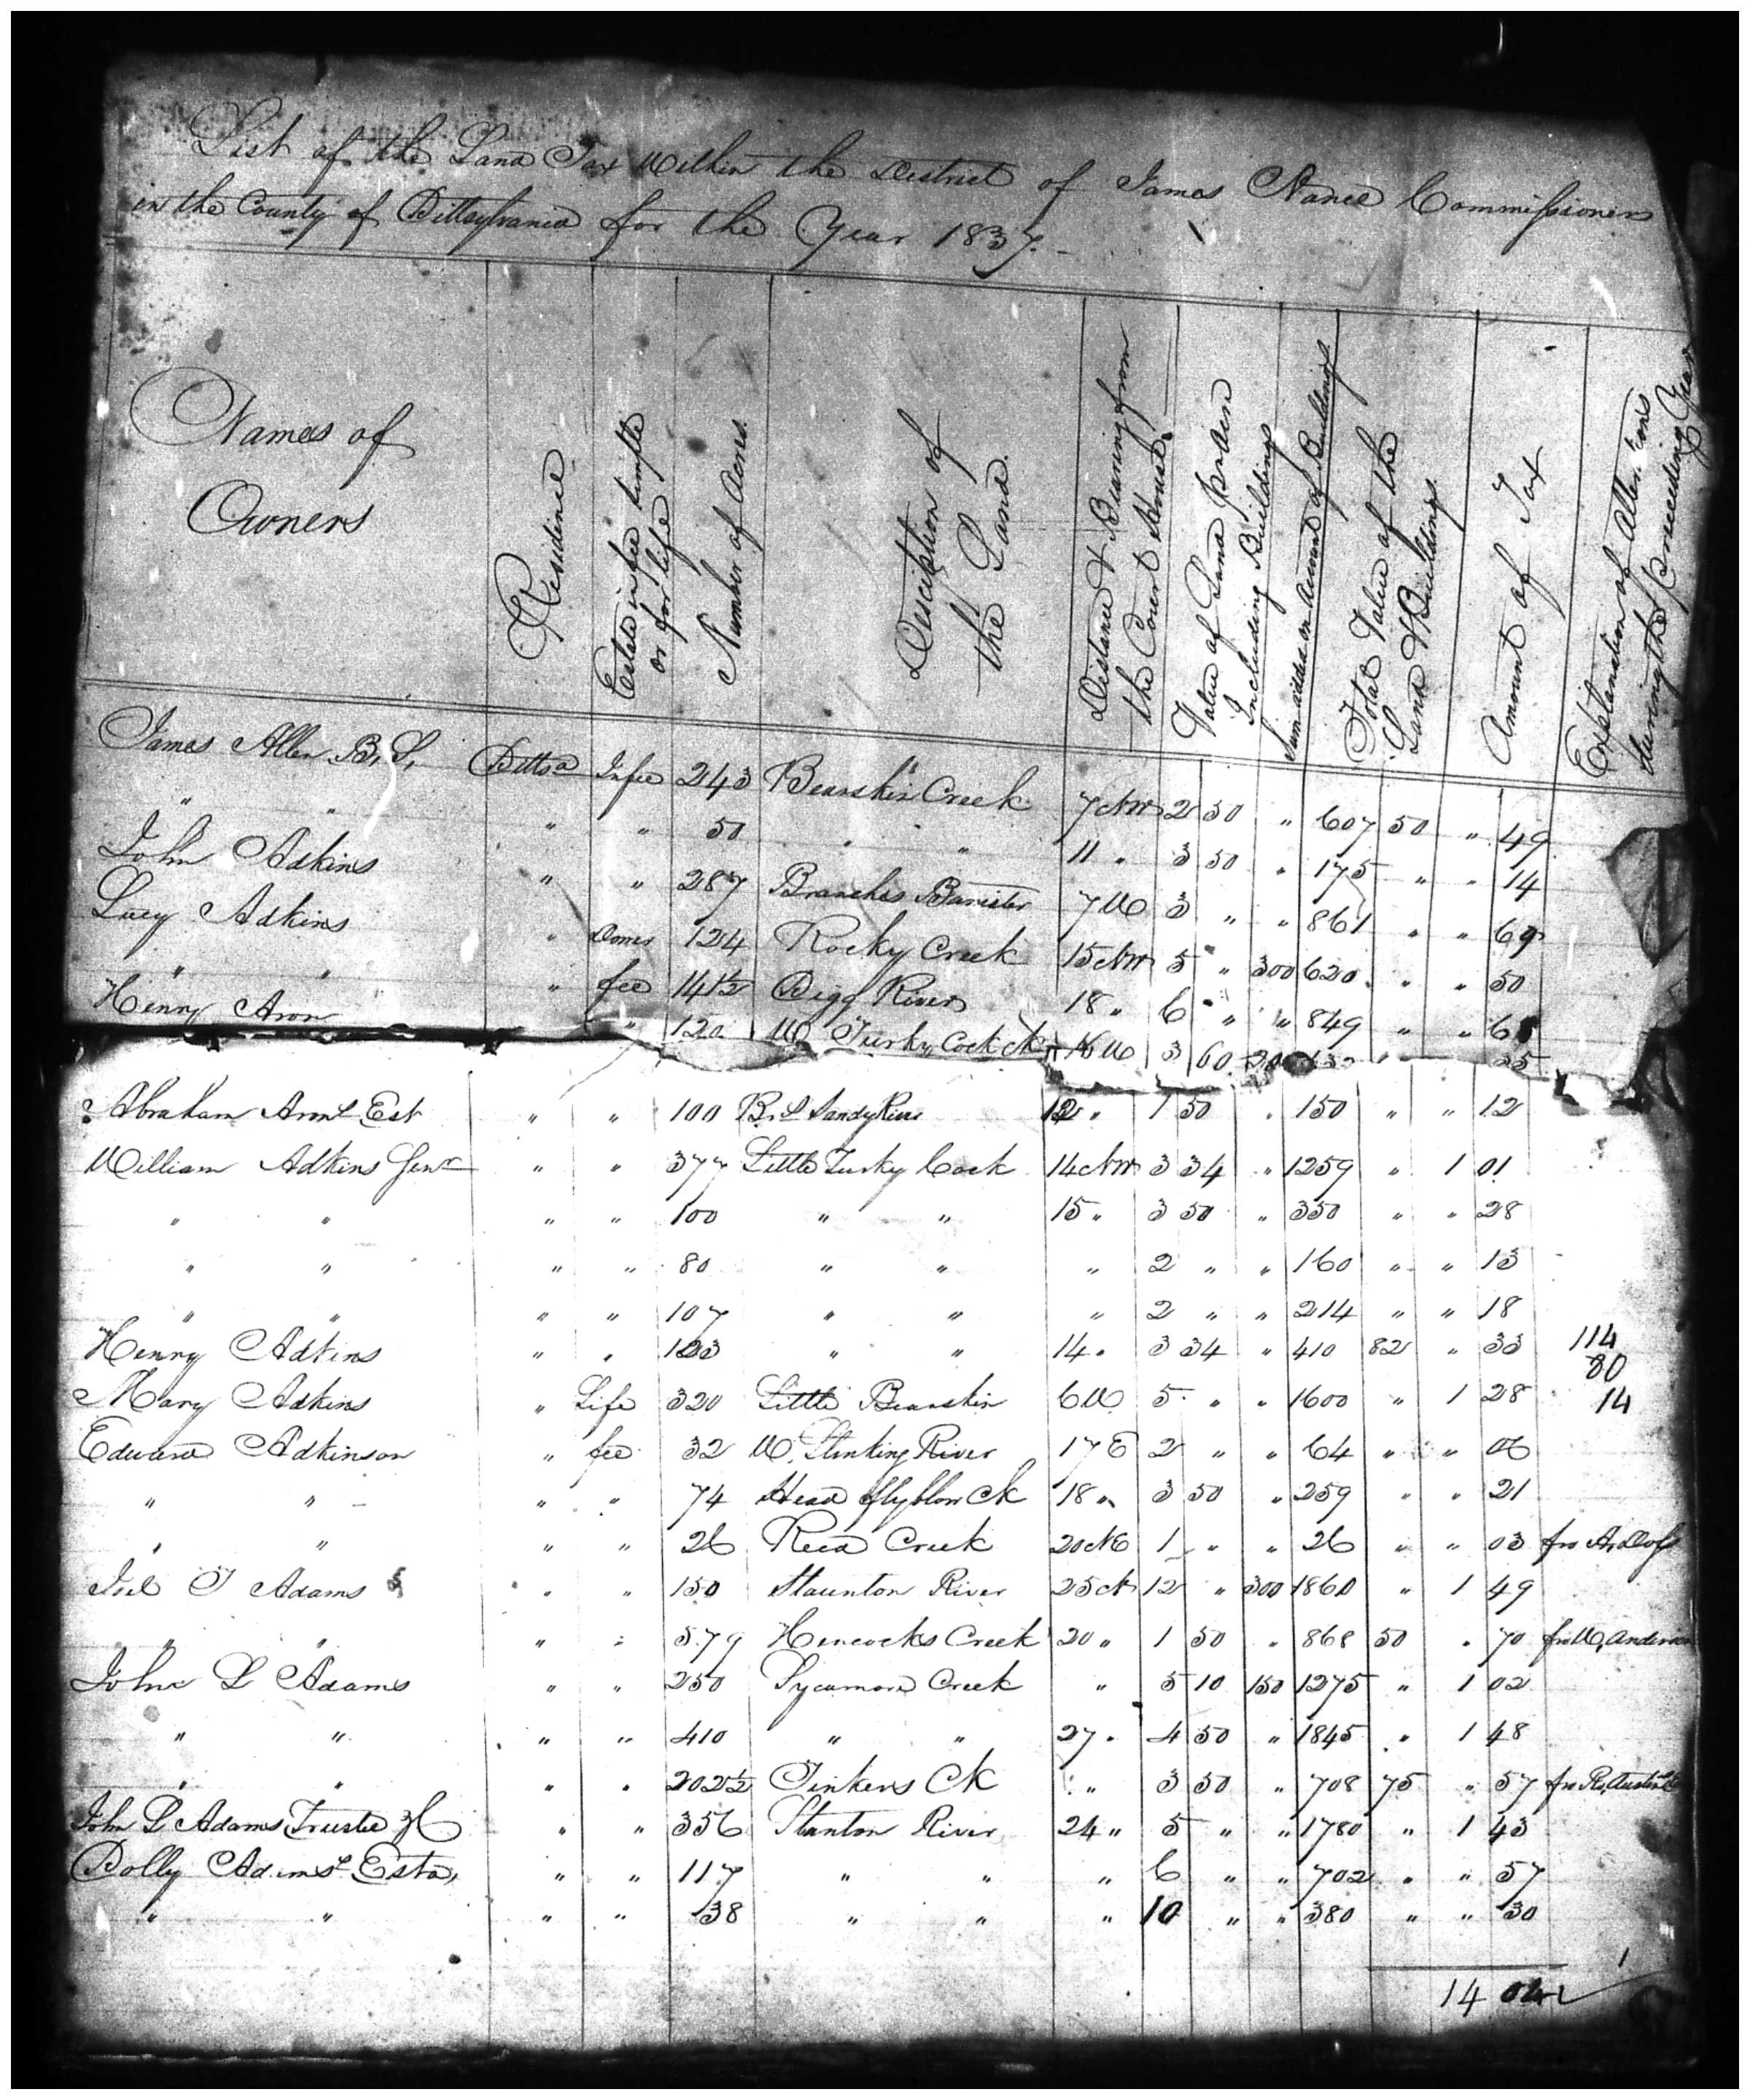 List of the Land Tax Within the District of James Nance Commissioner
in the County of Pittsylvania for the Year 1837.
Names of Owners
Residence
Estate in fee simple or for life
Number of Acres.
Desciption of the Land.
Distance & Bearing from the Court House.
Value of Land pr Acre Including Buildings
Sum added on Account of Buildings
Total Value of the Land & Buildings
Amount of Tax
Explanation of Alterations during the preceeding Year
James Allen B. S. Pittsa Infee 243 Bearskin Creek 7 NW 2 50 " 607 50 " 49
" " " " 50 " " 11 " 3 50 " 175 " " 14
John Adkins " " 287 Branches Banister 7 W 3 " " 861 " " 69
Lucy Adkins " Dower 124 Rocky Creek 15 NW 5 " 300 620 " " 50
" " " fee 141½ Pigg River 18 " 6 " " 849 " " 68
Henry Aron " 120 W. Turky Cock Ck 16 W 3 60 35
Abraham Arons Est " " 100 Br. S Sandy River 12 " 1 50 " 150 " " 12
William Adkins Senr " " 377 Little Turky Cock 14 NW 3 34 " 1259 " 1 01
" " " " 100 " " 15 " 3 50 " 350 " " 28
" " " " 80 " " " 2 " " 160 " " 13
" " " " 107 " " " 2 " " 214 " " 18
Henry Adkins " " 123 " " 14 " 3 34 " 410 82 " 33 114
80
Mary Adkins " Life 320 Little Bearskin 6 W 5 " " 1600 " 1 28 14
Edward Adkinson " fee 32 W. Stinking River 17 E 2 " " 64 " " 06
" " " " 74 Head Flyblow Ck 18 " 3 50 " 259 " " 21
" " " " 26 Reed Creek 20 NE 1 " " 26 " " 03 fro
Joel T Adams " " 150 Staunton River 25 N 12 " 300 1860 " 1 49
" " " " 579 Hencocks Creek 20 " 1 50 " 868 50 " 70 fro W. Anderson
John L Adams " " 250 Sycamore Creek " 5 10 150 1275 " 1 02
" " " " 410 " " 27 " 4 50 " 1845 " 1 48
" " " " 202½ Tinkers Ck " 3 50 " 708 75 " 57 fro Austin
John L Adams Trustee " " 356 Stanton River 24 " 5 " " 1780 " 1 43
Polly Adams Esta, " " 117 " " " 6 " " 702 " " 57
" " " " 38 " " " 10 " " 380 " " 30
14